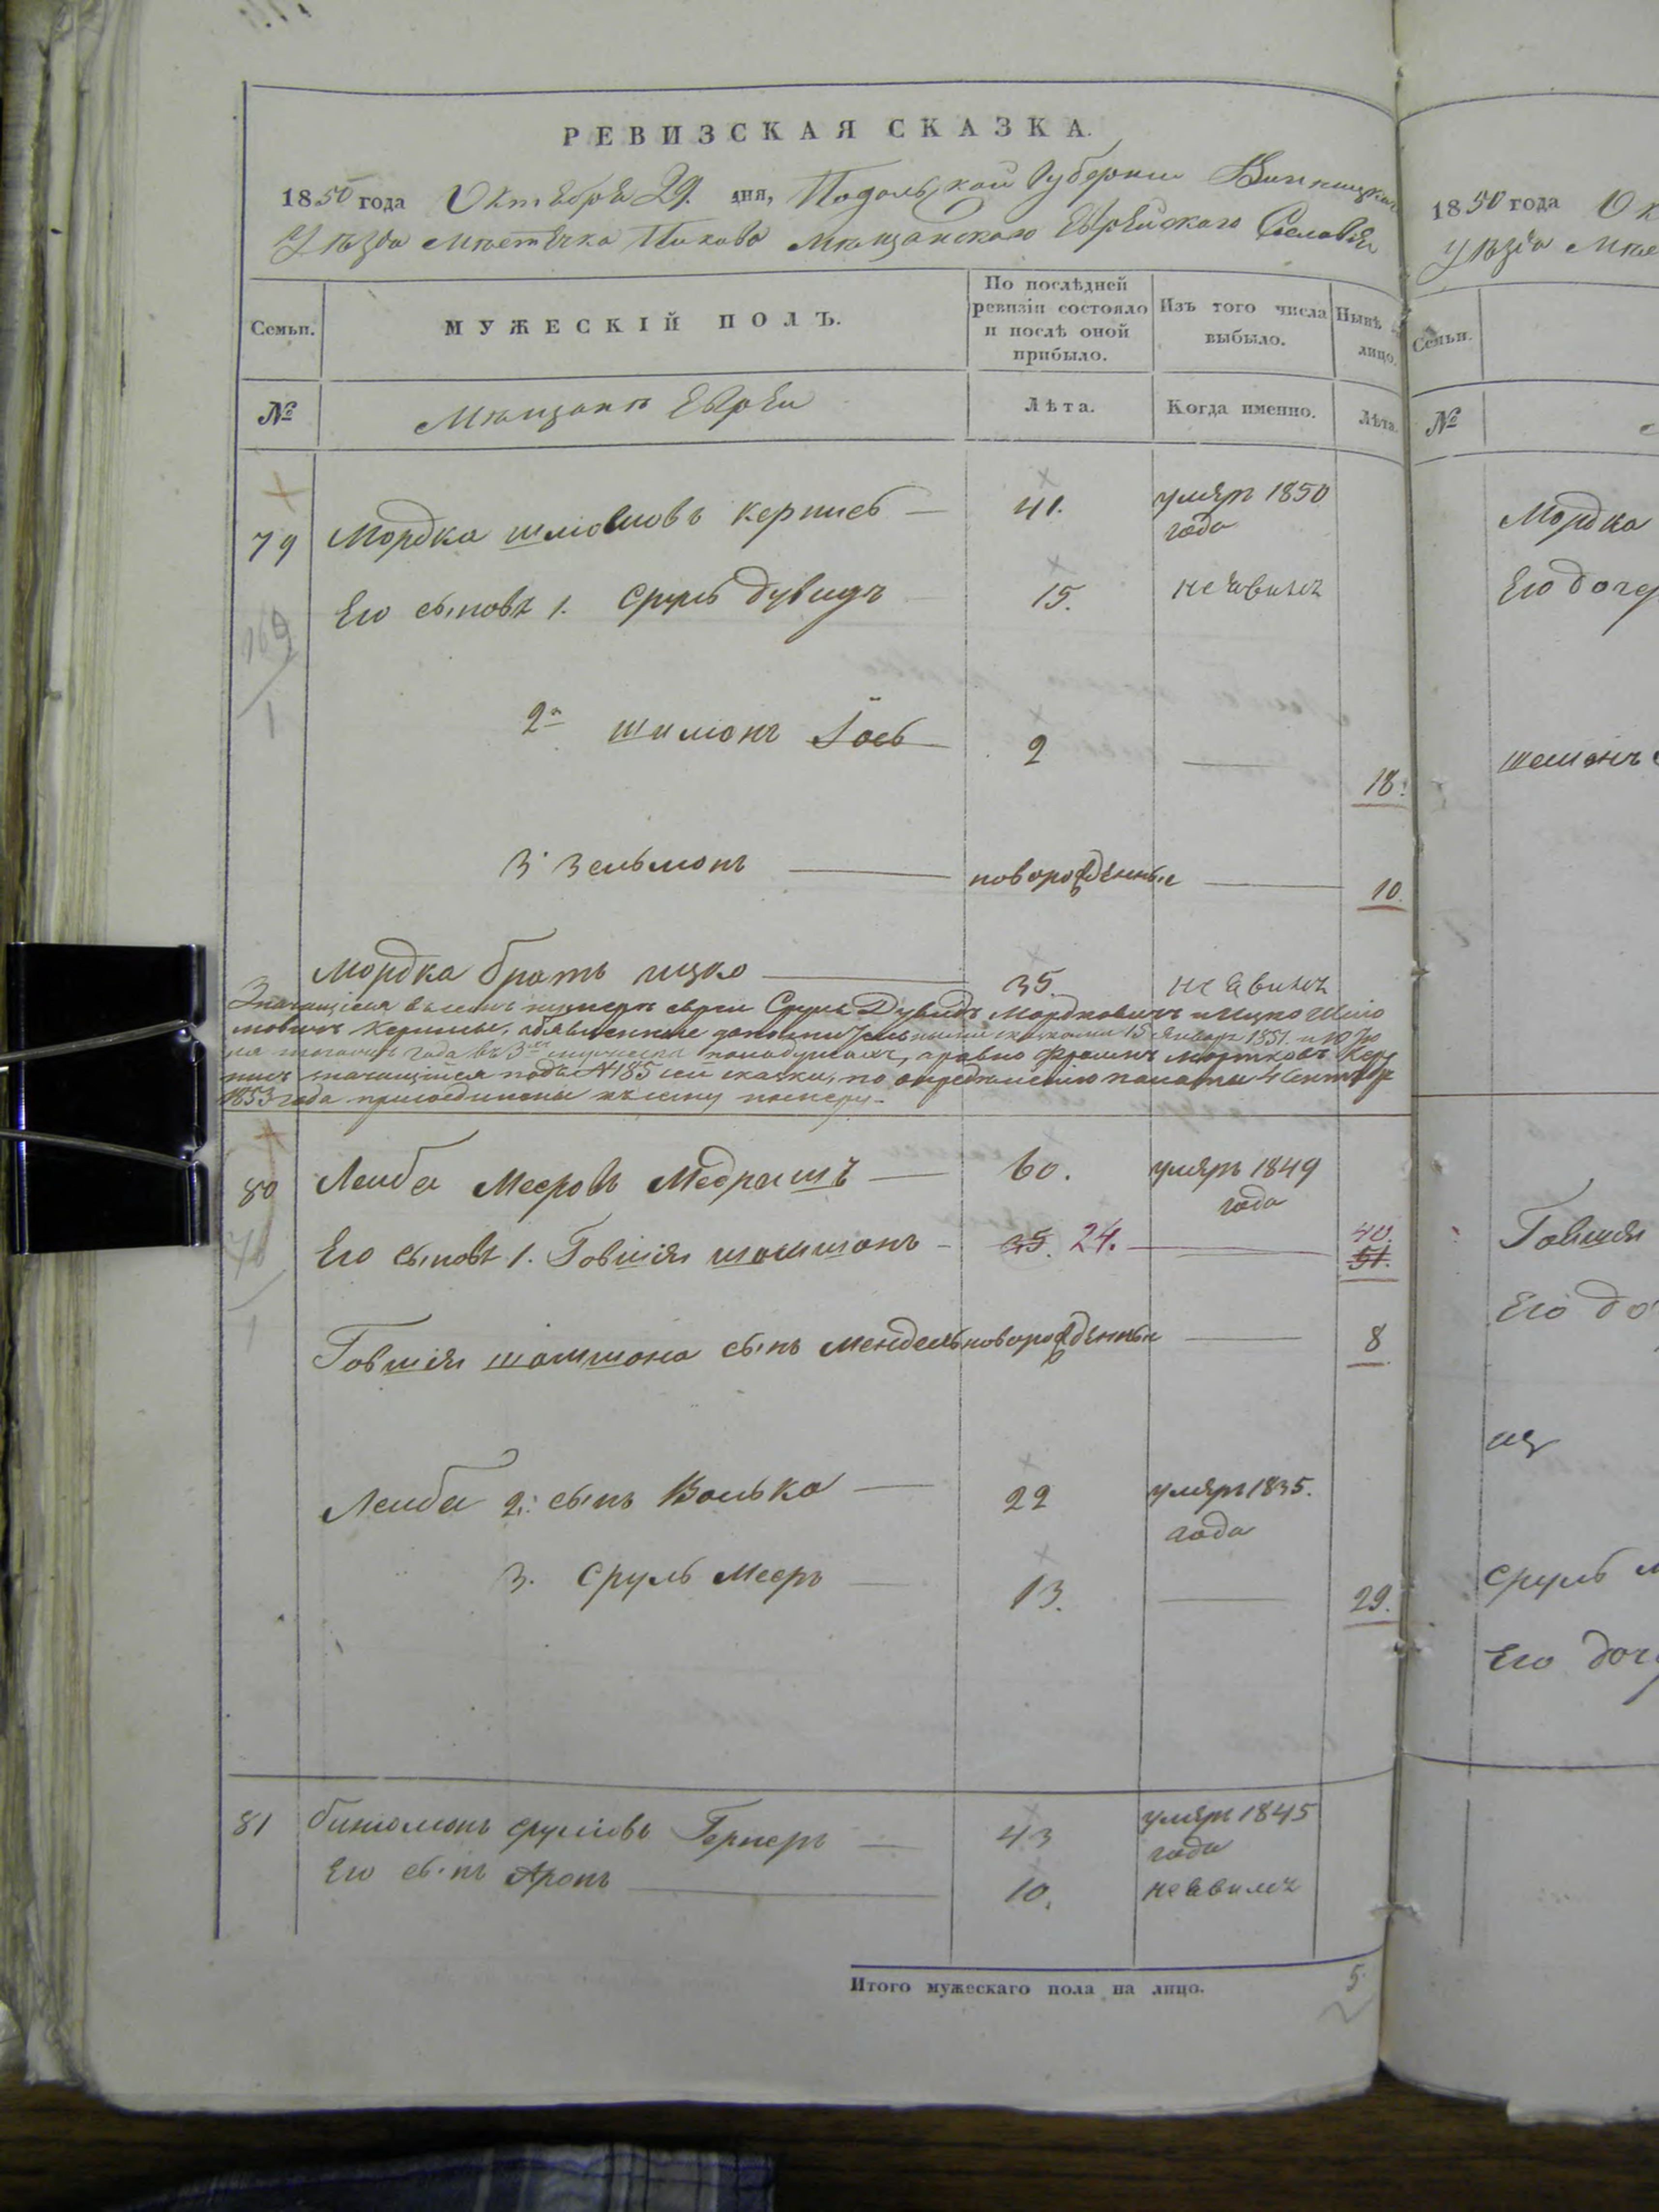 РЕВИЗСКАЯ СКАЗКА.
1850 года Октября 29. дня, Подольской Губернии Винницкаго
Уѣзда мѣстечка Пикова мѣщанскаго Еврейскаго Сословія
Семьи.
МУЖЕСКІЙ ПОЛЪ.
По послѣдней ревизіи состояло и послѣ оной прибыло.
Изъ того числа выбыло.
Нынѣ на лицо.
№
Мѣщане Евреи
Лѣта.
Когда именно.
Лѣта.
79 Мордка Шмойловъ Кернисъ — 41. умеръ 1850 года
Его сыновья 1. Сруль Дувидъ 15. не явился
169
1
2й Шимонъ Іось 2 — 18.
3. Зельмонъ — новорожденные — 10.
Мордка братъ Ицко — 35. не явился
Значащіеся въ семъ нумерѣ евреи Сруль Дувидъ Мордковичъ и Ицко Шмо
15 Января 1851. и 10
года въ 3 а равно
значащійся подъ № 185 сей сказки, по опредѣленію палаты 4 Сентября
1853 года присоединены къ сему нумеру.
80 Лейба Мееровъ Медрашъ — 60. умеръ 1849 года
Его сыновья 1. Говшія Шамшонъ — 35. 24. — 40. 51.
Говшія Шамшона сынъ Мендель новорожденные — 8
Лейба 2. сынъ Волько — 22 умеръ 1835. года
3. Сруль Мееръ — 13. — 29.
81 Биніоминъ Сруліовъ Гернеръ — 43 умеръ 1845 года
Его сынъ Аронъ — 10. не явился
Итого мужескаго пола на лицо. 5
1850 года Ок
Уѣзда мѣс
Семьи.
№
Мордка
Его дочер
Шимонъ
Говшія
Его до
Сруль М
Его доч